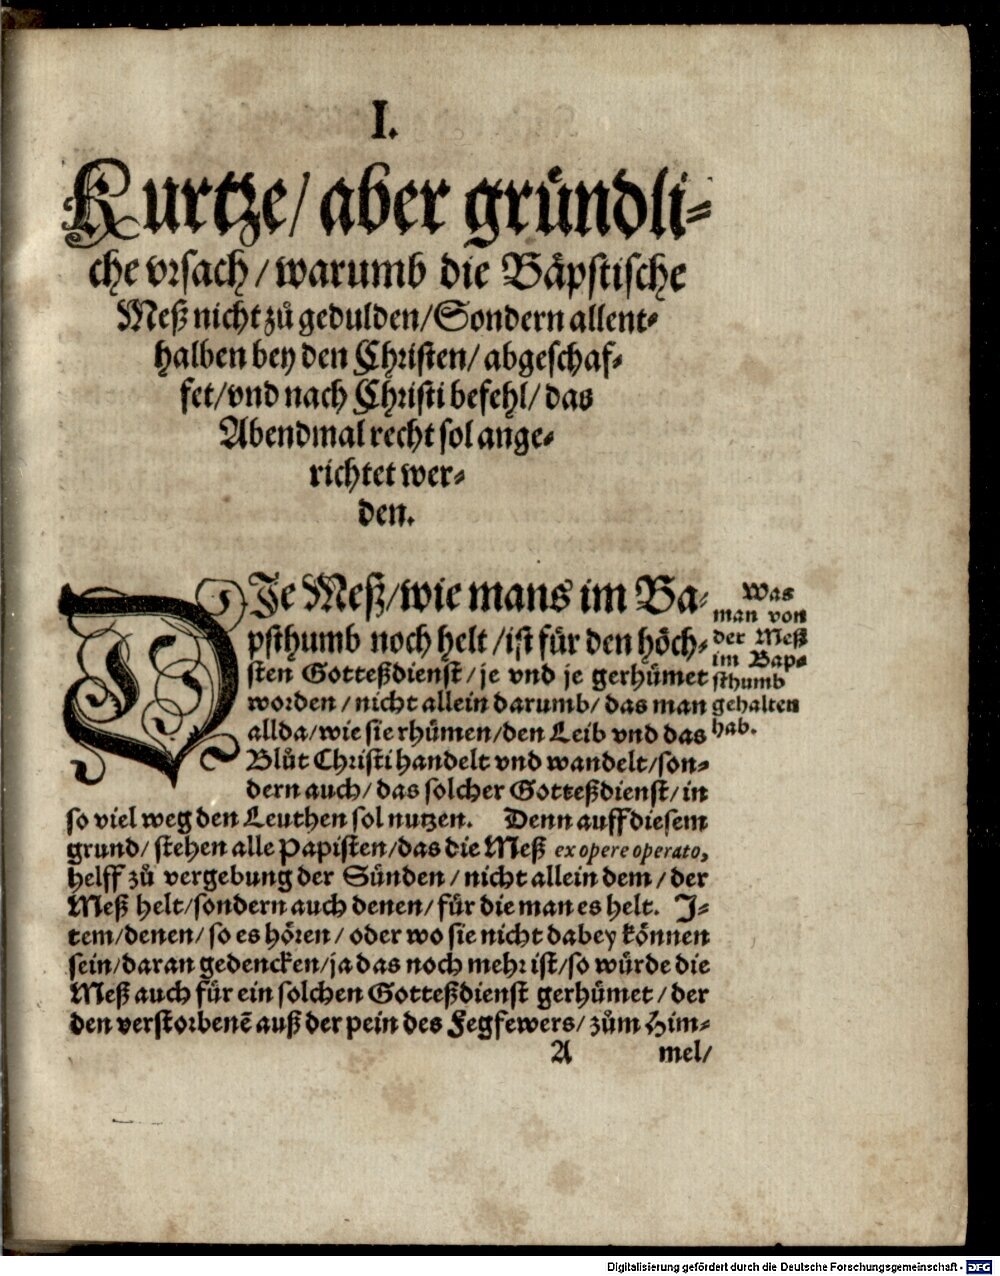 I.
Kurtze/ aber gründli⸗
che vrsach/ warumb die Bäpstische
Meß nicht zů gedulden/ Sondern allent⸗
halben bey den Christen/ abgeschaf⸗
fet/ vnd nach Christi befehl/ das
Abendmal recht sol ange⸗
richtet wer⸗
den.
DIe Meß/ wie mans im Ba⸗
psthumb noch helt/ ist für den höch⸗
sten Gotteßdienst/ je vnd je gerhümet
worden/ nicht allein darumb/ das man
allda/ wie sie rhümen/ den Leib vnd das
Blůt Christi handelt vnd wandelt/ son⸗
dern auch/ das solcher Gotteßdienst/ in
so viel weg den Leuthen sol nutzen. Denn auff diesem
grund/ stehen alle Papisten/ das die Meß ex opere operato,
helff zů vergebung der Sünden/ nicht allein dem/ der
Meß helt/ sondern auch denen/ für die man es helt. J⸗
tem/ denen/ so es hören/ oder wo sie nicht dabey können
sein/ daran gedencken/ ja das noch mehr ist/ so würde die
Meß auch für ein solchen Gotteßdienst gerhümet/ der
den verstorbenē auß der pein des Fegfewers/ zům Him⸗
A mel/
Was
man von
der Meß
im Bap⸗
sthumb
gehalten
hab.
Digitalisierung gefördert durch die Deutsche Forschungsgemeinschaft - DFG